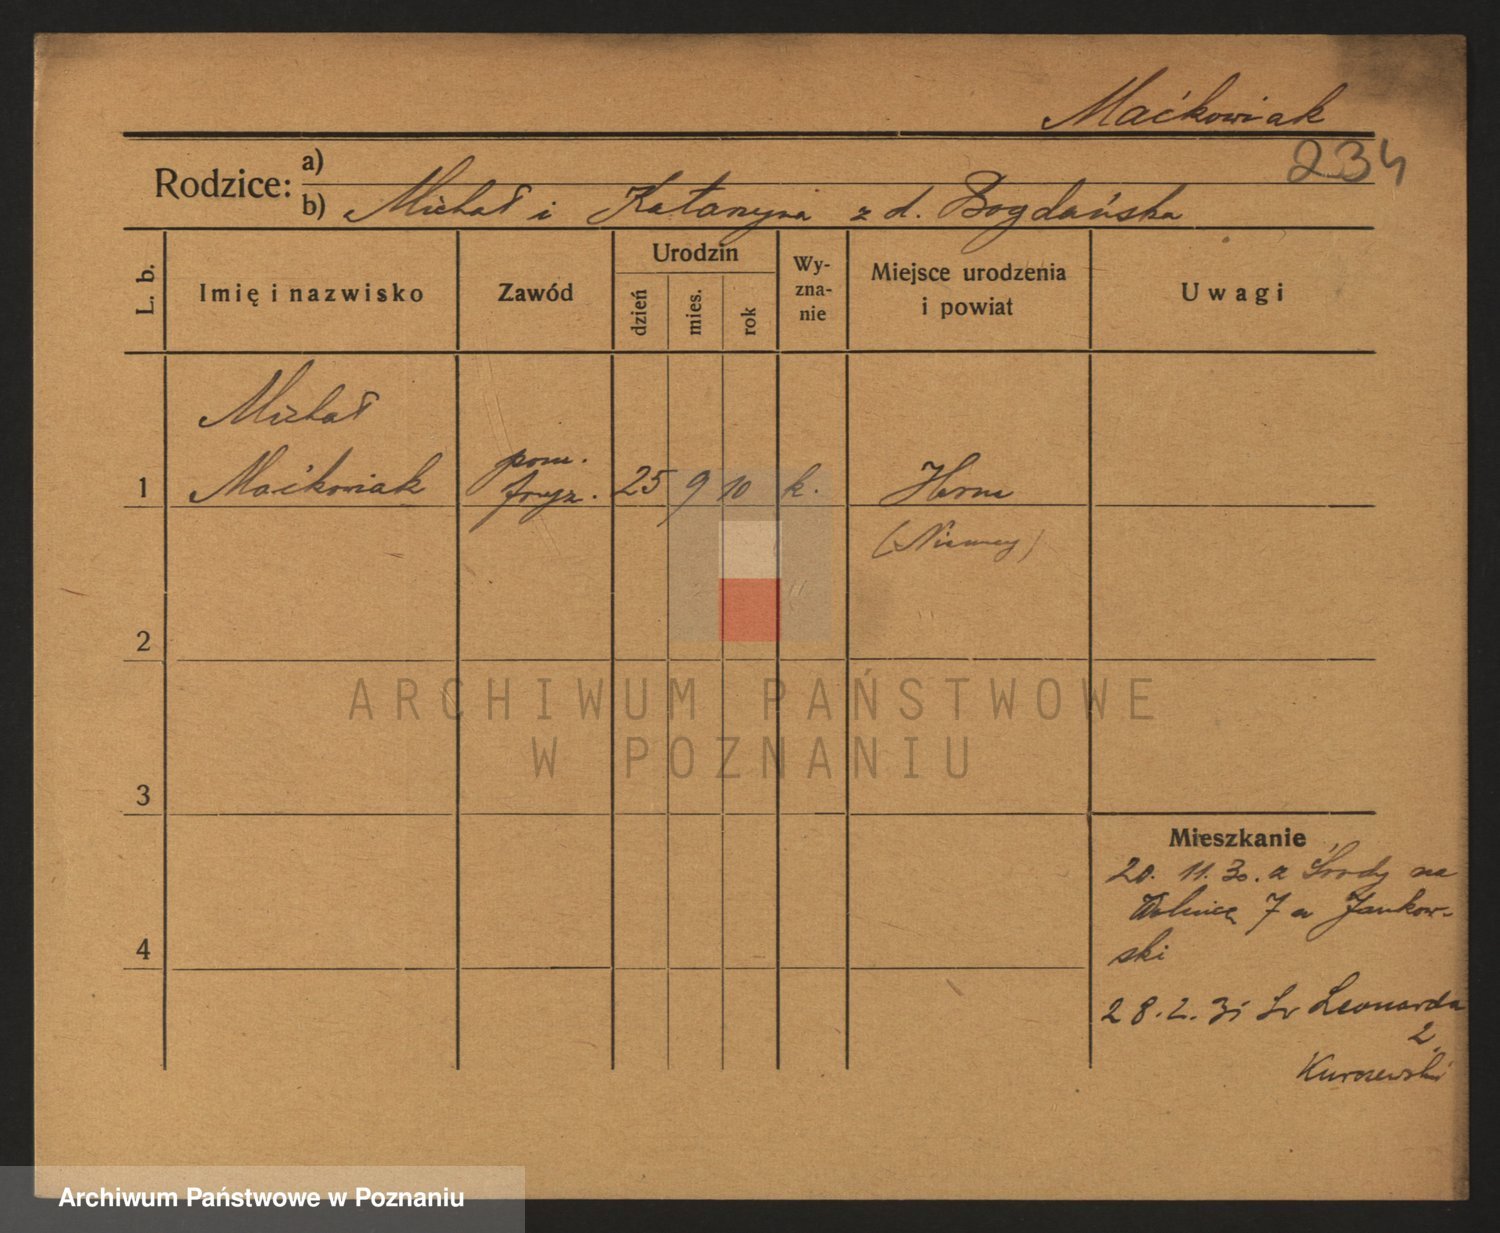 Maćkowiak
234
Rodzice: a)
b) Michał i Katarzyna z d. Bogdańska
L. b.
Imię i nazwisko
Zawód
Urodzin
dzień
mies.
rok
Wy-
zna-
nie
Miejsce urodzenia
i powiat
Uwagi
Michał
pom.
1 Maćkowiak fryz. 25 9 10 k. Herne
(Niemcy)
2
3
4
ARCHIWUM PAŃSTWOWE
W POZNANIU
Mieszkanie
20. 11. 30. z Środy na
7 a Jankow-
ski
28. 2. 31 Św Leonarda
2
Kurczewski
Archiwum Państwowe w Poznaniu